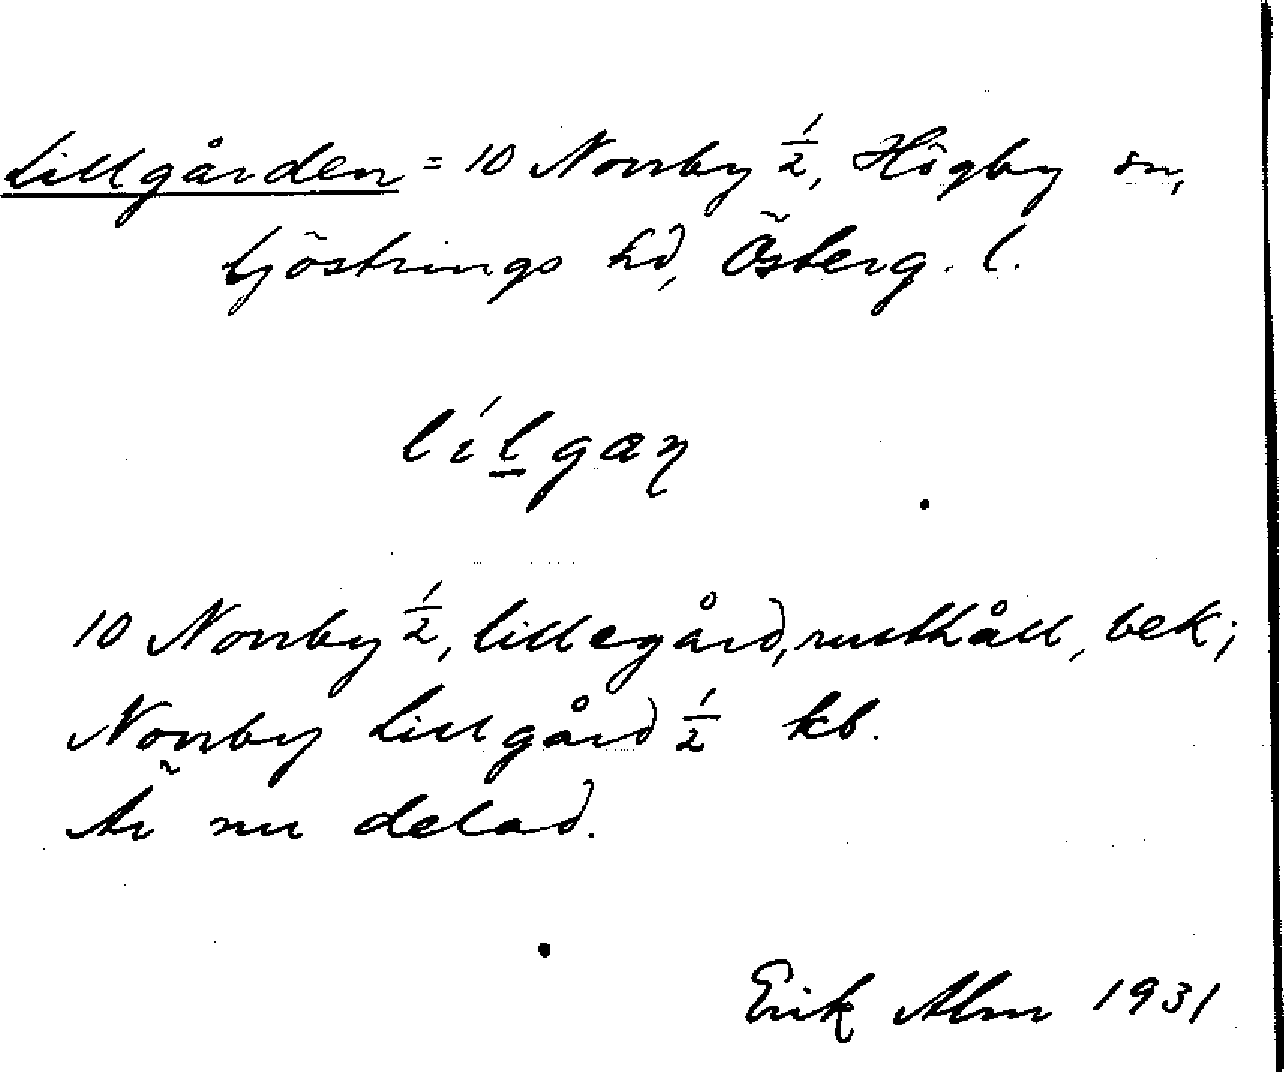 Lillgården = 10 Norrby 1/2, Högby sn,
Göstrings hd, Österg. l.
lílgaṇ
10 Norrby 1/2, lillegård, rusthåll, bek;
Norrby Lillgård 1/2 kb.
Är nu delad.
Erik Alm 1931